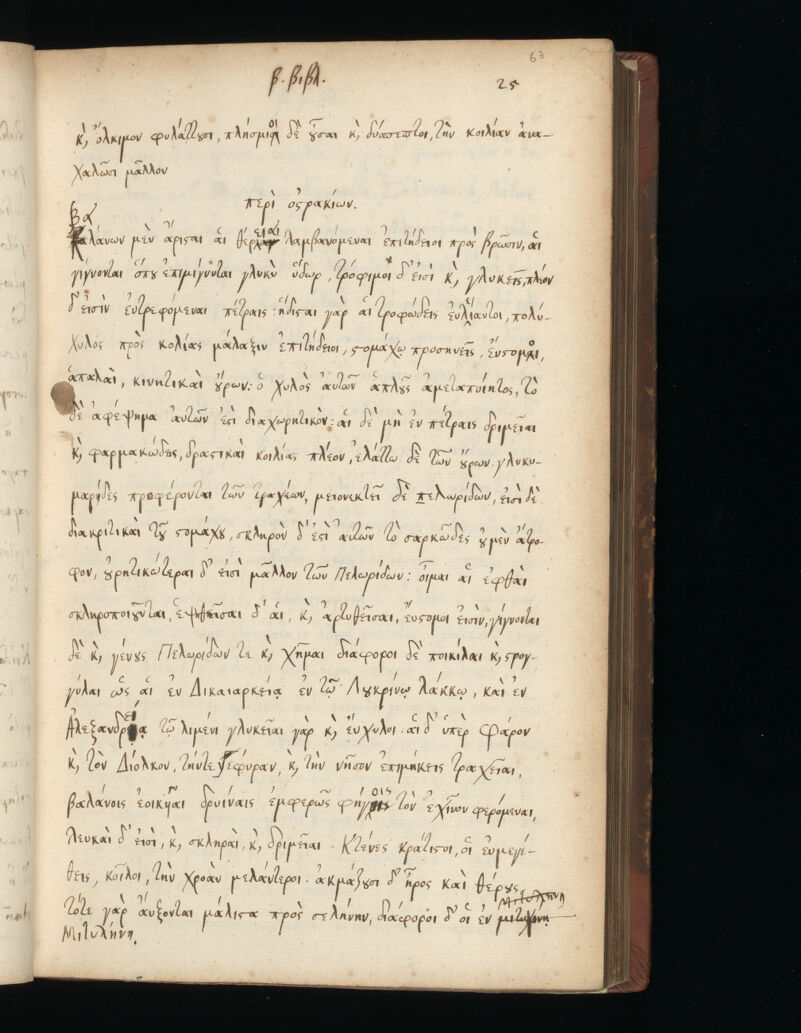 63
β. βιβλ.
25
κ, ὅλκιμον φυλάττουσι, πλήσμιοι δὲ οὖσαι κ, δύσπεπτοι, τὴν κοιλίαν ἀνα-
χαλῶσι μᾶλλον
περὶ ὀστρακίων.
Βαλάνων μὲν ἄρισται αἱ θέρει λαμβανόμεναι ἐπιτήδειοι πρὸς βρῶσιν, αἱ
γίγνονται ὅπου ἐπιμίγνυται γλυκὺ ὕδωρ, τρόφιμοι δ' εἰσὶ κ, γλυκεῖς, πλέον
δ' εἰσὶν εὐτρεφόμεναι πέτραις : ἥδισται γὰρ αἱ τροφώδεις πολύ-
χυλος πρὸς κοιλίας μάλαξιν ἐπιτήδειοι, στομάχῳ προσηνεῖς, εὔστομοι,
ἁπαλαὶ, κινητικαὶ οὔρων : ὁ χυλὸς αὐτῶν ἁπλοῦς ἀμεταποίητος, τὸ
δὲ ἀφέψημα αὐτῶν ἐστὶ διαχωρητικὸν : αἱ δὲ μὴ ἐν πέτραις δριμεῖαι
κ, φαρμακώδεις, δραστικαὶ κοιλίας πλέον, ἐλάττω δὲ τῶν οὔρων. γλυκυ-
μαρίδες προφέρονται τῶν τραχέων, μειονεκτεῖ δὲ πελωρίδων, εἰσὶ δὲ
διακριτικαὶ τοῦ στομάχου, σκληρὸν δ' ἐστὶ αὐτῶν τὸ σαρκῶδες οὐ μὲν ἄτρο-
φον, οὐρητικώτεραι δ' εἰσὶ μᾶλλον τῶν Πελωρίδων : οἶμαι αἱ ἑφθαὶ
σκληροποιοῦνται, ἑψηθεῖσαι δ' αἱ, κ, ἀρτυθεῖσαι, εὔστομοι εἰσὶν, γίγνονται
δὲ κ, γένους Πελωρίδων τε κ, χῆμαι διάφοροι δὲ ποικίλαι κ, στρογ-
γύλαι ὡς αἱ ἐν Δικαιαρκείᾳ ἐν τῷ Λουκρίνῳ λάκκῳ, καὶ ἐν
Ἀλεξανδρείᾳ τῷ λιμένι γλυκεῖαι γὰρ κ, εὔχυλοι. αἱ δ' ὑπὲρ Φάρον
κ, τὸν Δίολκον, τήντε Γέφυραν, κ, τὴν νῆσον ἐπιμήκεις τραχεῖαι,
βαλάνοις ἐοικυῖαι δρυίναις ἐμφερῶς φηγοῖς τὸν ἐχῖνον φερόμεναι,
λευκαὶ δ' εἰσὶ, κ, σκληραὶ, κ, δριμεῖαι. Κτένες κράτιστοι, οἱ εὐμεγέ-
θεις, κοῖλοι, τὴν χροὰν μελάντεροι. ἀκμάζουσι δ' ἦρος καὶ θέρους,
τότε γὰρ αὔξονται μάλιστα πρὸς σελήνην, διάφοροι δ' οἱ ἐν
Μιτυλήνῃ.